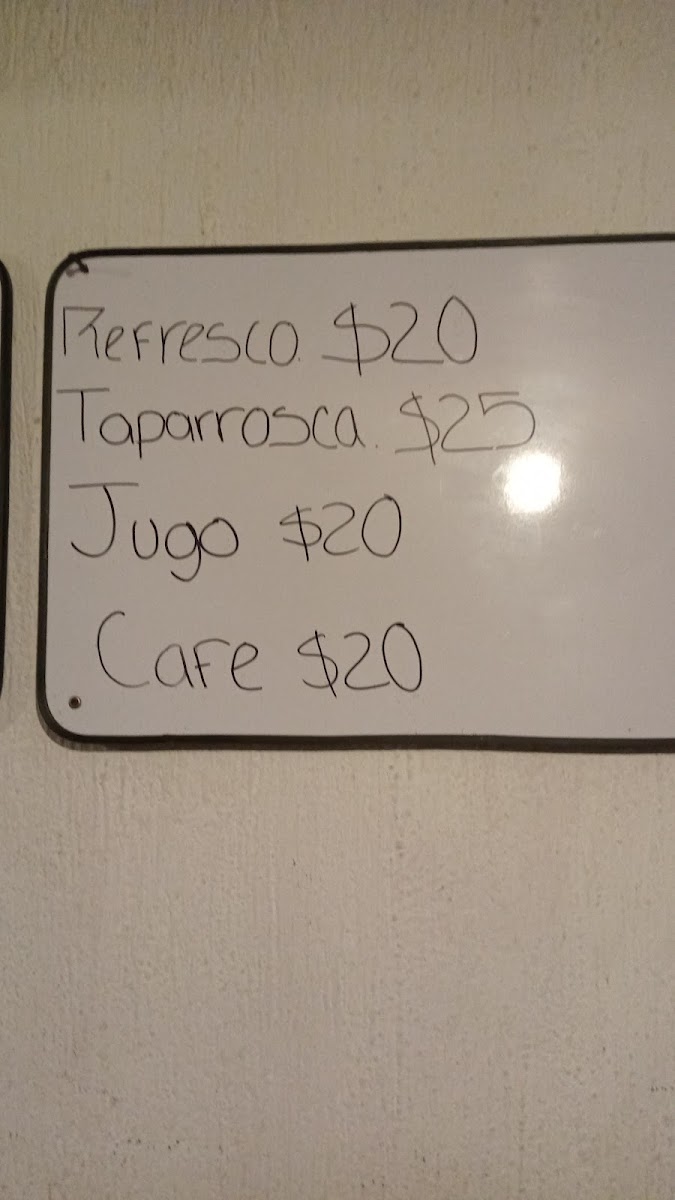 Refresco. $20
Taparrosca. $25
Jugo $20
Cafe $20